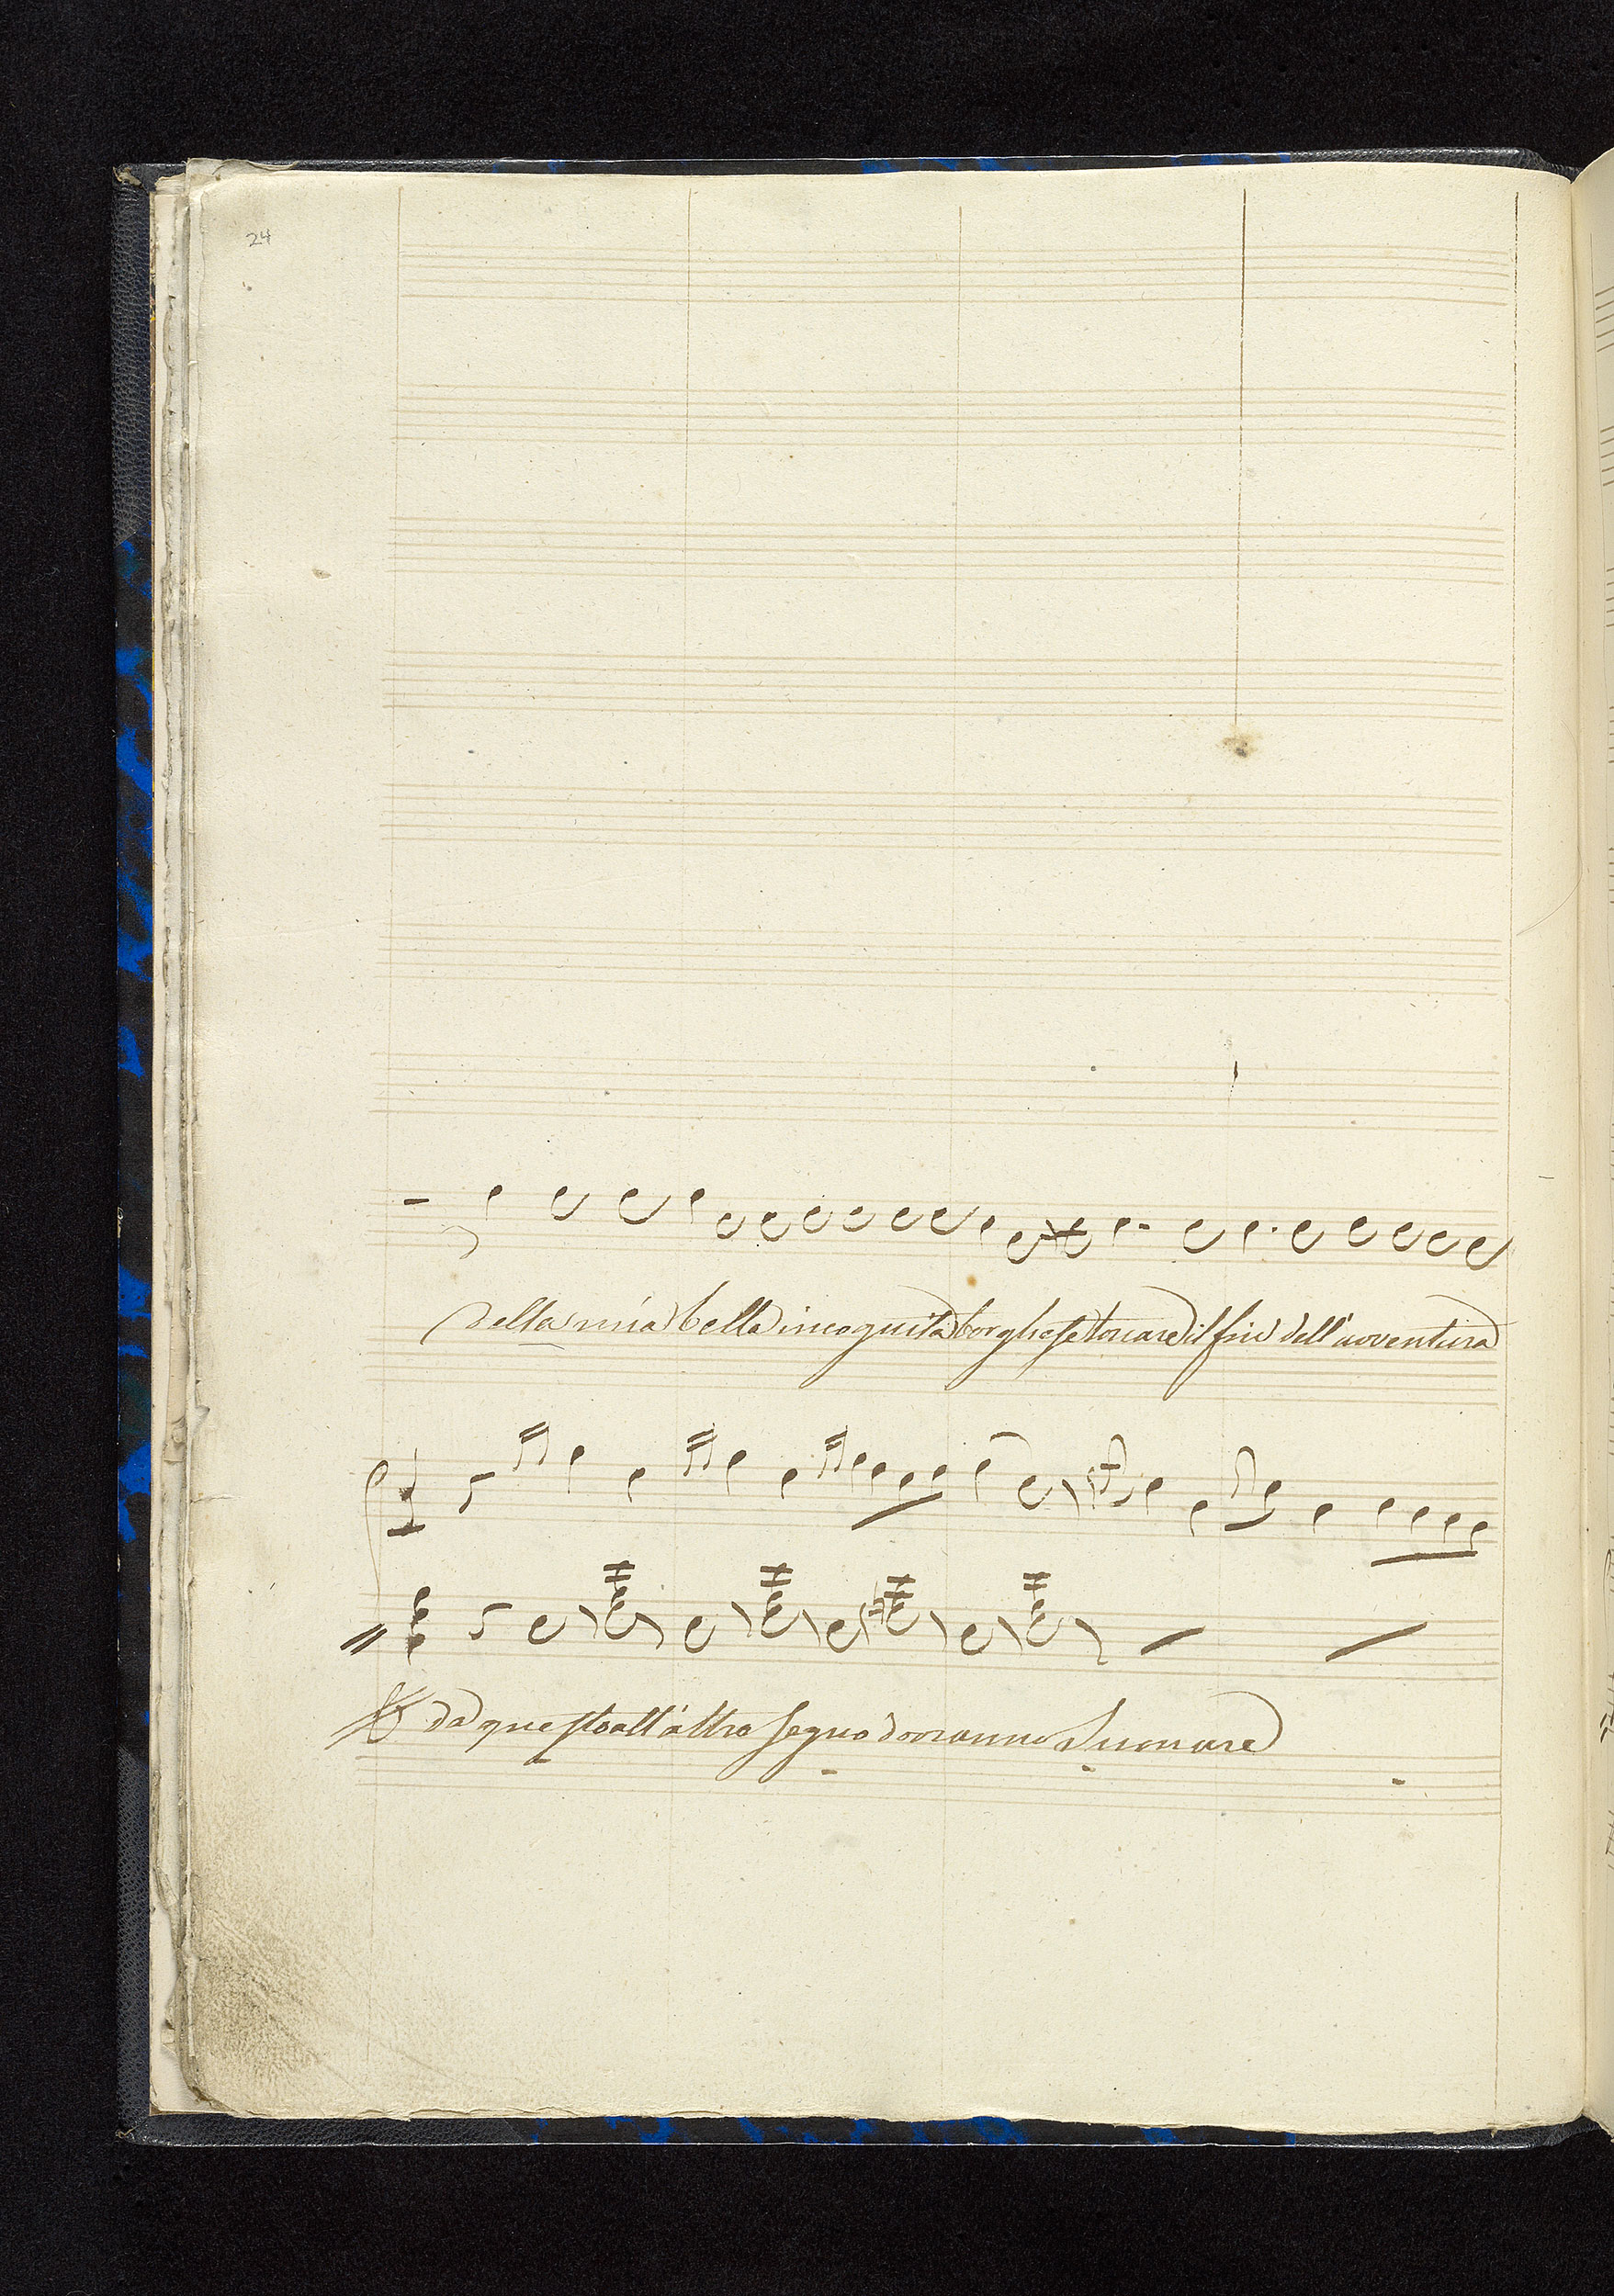 24
Della mia bella incognita borghese toccare il fin dell'avventura
da questo all'altro segno dovranno suonare